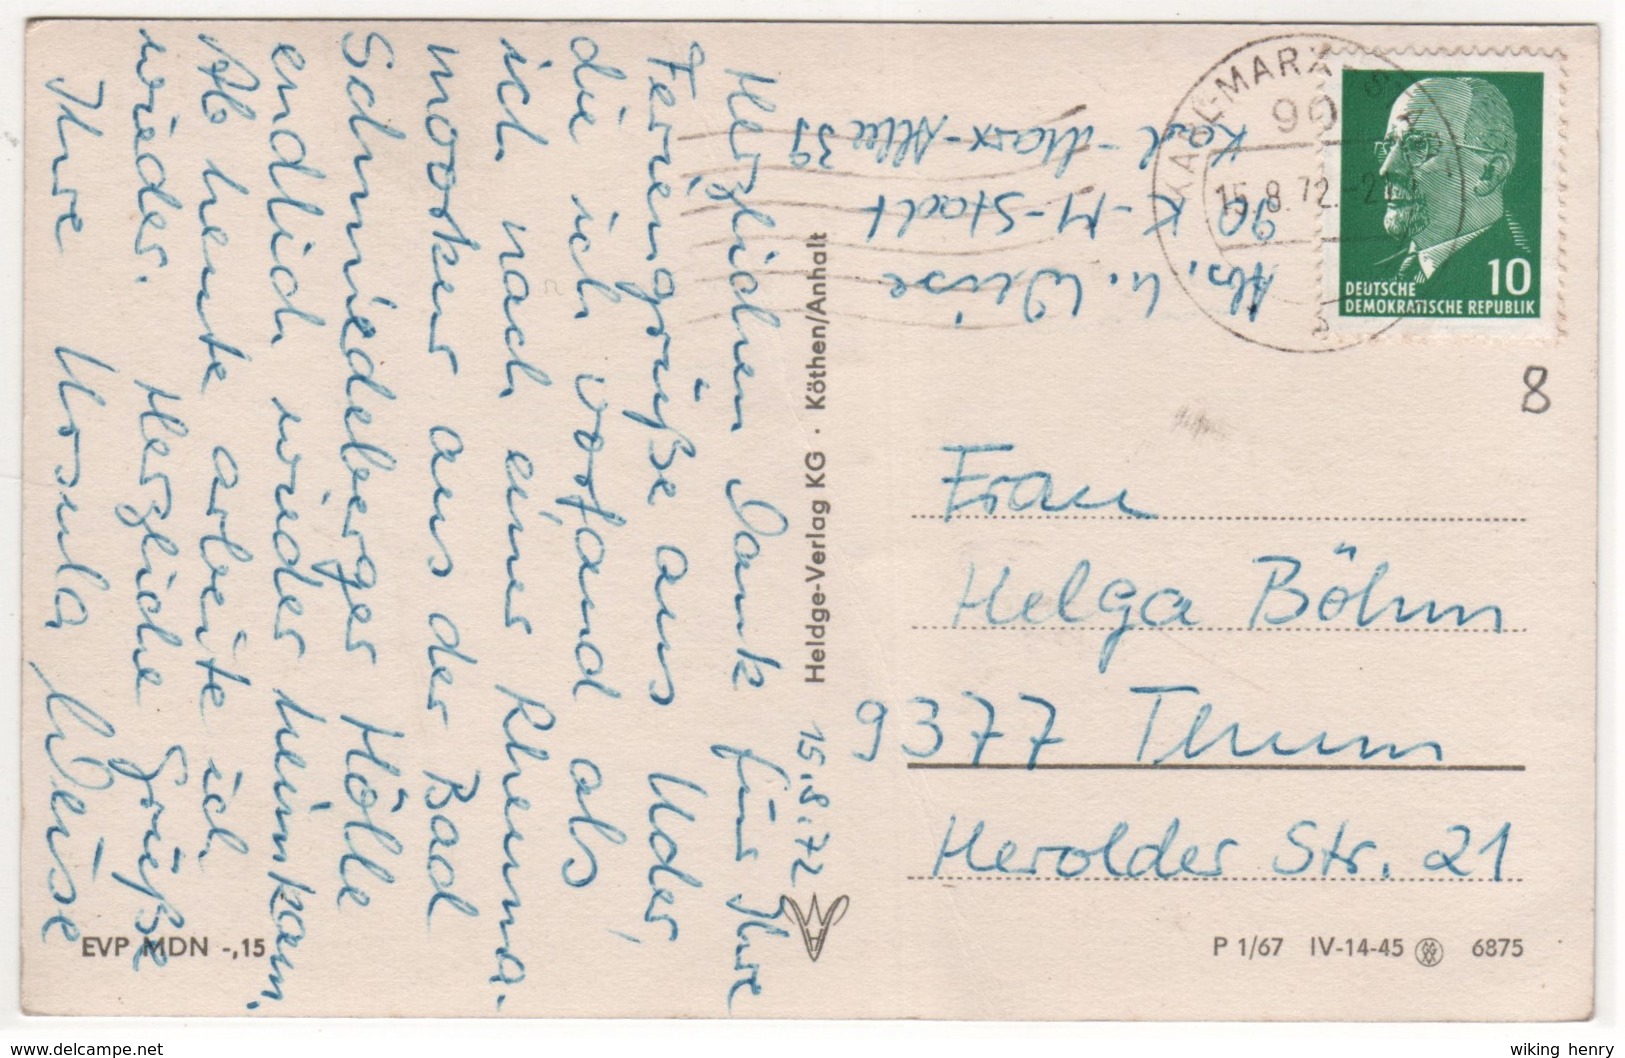 15.8.72
Herzlichen Dank für Ihre
Feriengrüße aus Uder,
die ich vorfand als
ich nach einer Rheuma-
moorkur aus der Bad
Schmiedeberger Hölle
endlich wieder heimkam.
Ab heute arbeite ich
wieder. Herzliche Grüße
Ihre Ursula Weise
Heldge-Verlag KG · Köthen/Anhalt
EVP MDN -,15
Abs. U. Weise
90 K-M-Stadt
Karl-Marx-Allee 39
KARL-MARX-STADT
90
15.8.72.-21
a
DEUTSCHE
DEMOKRATISCHE REPUBLIK
10
8
Frau
Helga Böhm
9377 Thum
Herolder Str. 21
P 1/67 IV-14-45 6875
www.delcampe.net
wiking henry